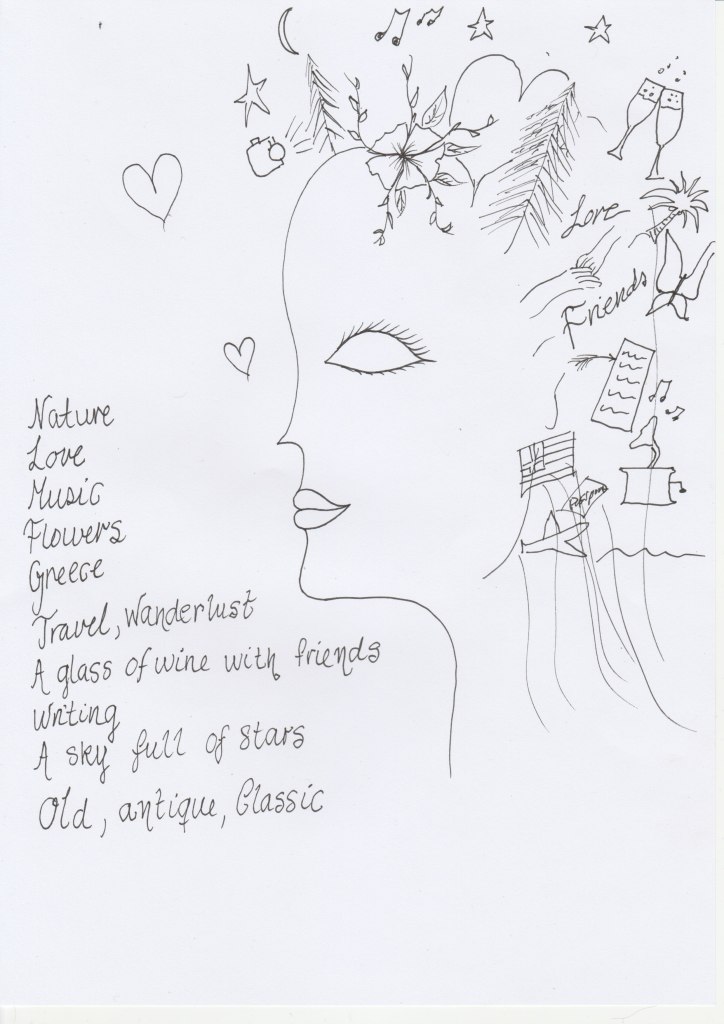 Love
Friends
Nature
Love
Music
Flowers
Greece
Travel, Wanderlust
A glass of wine with friends
Writing
A sky full of stars
Old, antique, Classic